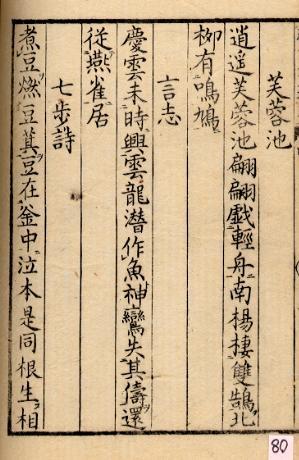 芙蓉池
逍遥芙蓉池翩翩戯輕舟南楊棲雙鵠北
柳有鳴鳩
言志
慶雲未時興雲龍潜作魚神鸞失其儔還
從燕雀居
七歩詩
煮豆燃豆萁豆在釜中泣本是同根生相
80